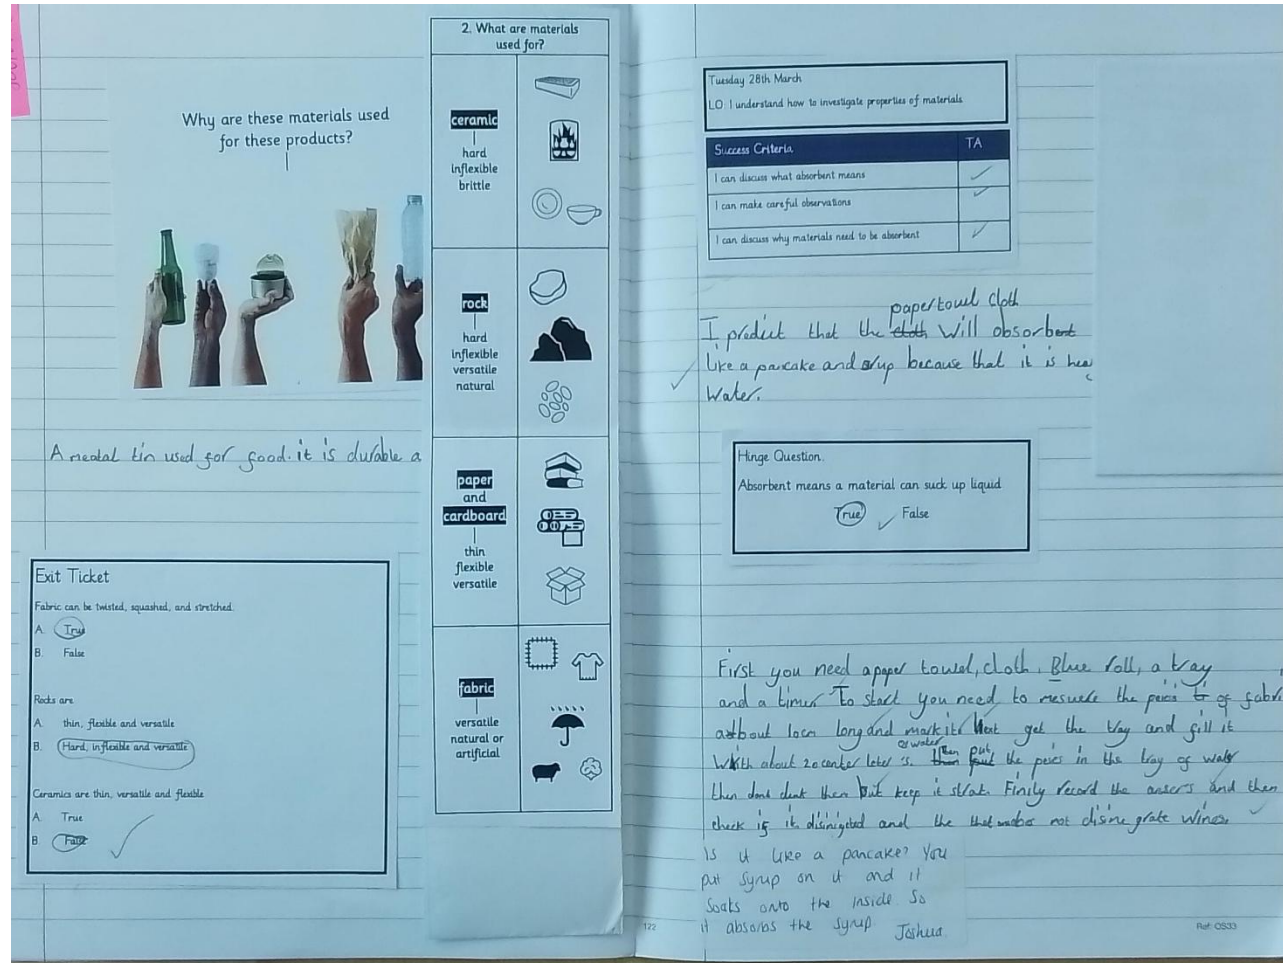 Why are these materials used
for these products?
A meatal tin used for good. it is durable a
Exit Ticket
Fabric can be twisted, squashed, and stretched.
A. True
B. False
Rocks are
A. thin, flexible and versatile
B. Hard, inflexible and versatile
Ceramics are thin, versatile and flexible
A. True
B. False
2. What are materials
used for?
ceramic
hard
inflexible
brittle
rock
hard
inflexible
versatile
natural
paper
and
cardboard
thin
flexible
versatile
fabric
versatile
natural or
artificial
Tuesday 28th March
LO: I understand how to investigate properties of materials
Success Criteria TA
I can discuss what absorbent means
I can make careful observations
I can discuss why materials need to be absorbent
papertowel cloth
I predict that the cloth will absorbent
like a pancake and syrup because that it is hea
Water.
Hinge Question.
Absorbent means a material can suck up liquid
True False
First you need a paper towel, cloth, Blue roll, a tray
and a timer To start you need to mesure the peies of fabr
about 10cm long and mark it. Next get the tray and fill it
With about 20 of water then put the peies in the tray of water
then dont but keep it strat. Finily record the ansers and then
check if it disinigeted and the not disine grate wins.
Is it like a pancake? You
put syrup on it and it
Soaks onto the inside So
it absorbs the syrup. Joshua
122
Ref: OS33